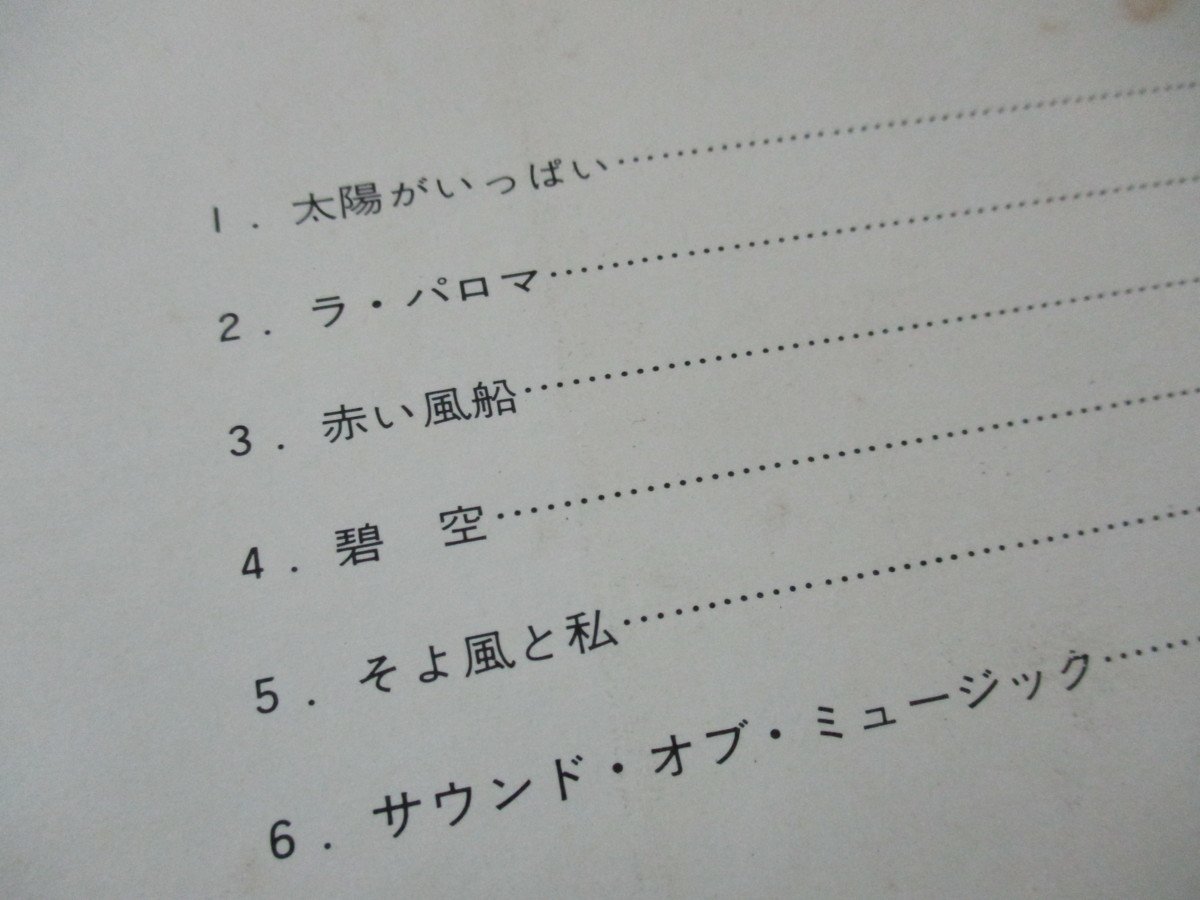 1. 太陽がいっぱい……………………………
2. ラ・パロマ……………………………
3. 赤い風船……………………………
4. 碧　空……………………………
5. そよ風と私……………………………
6. サウンド・オブ・ミュージック……